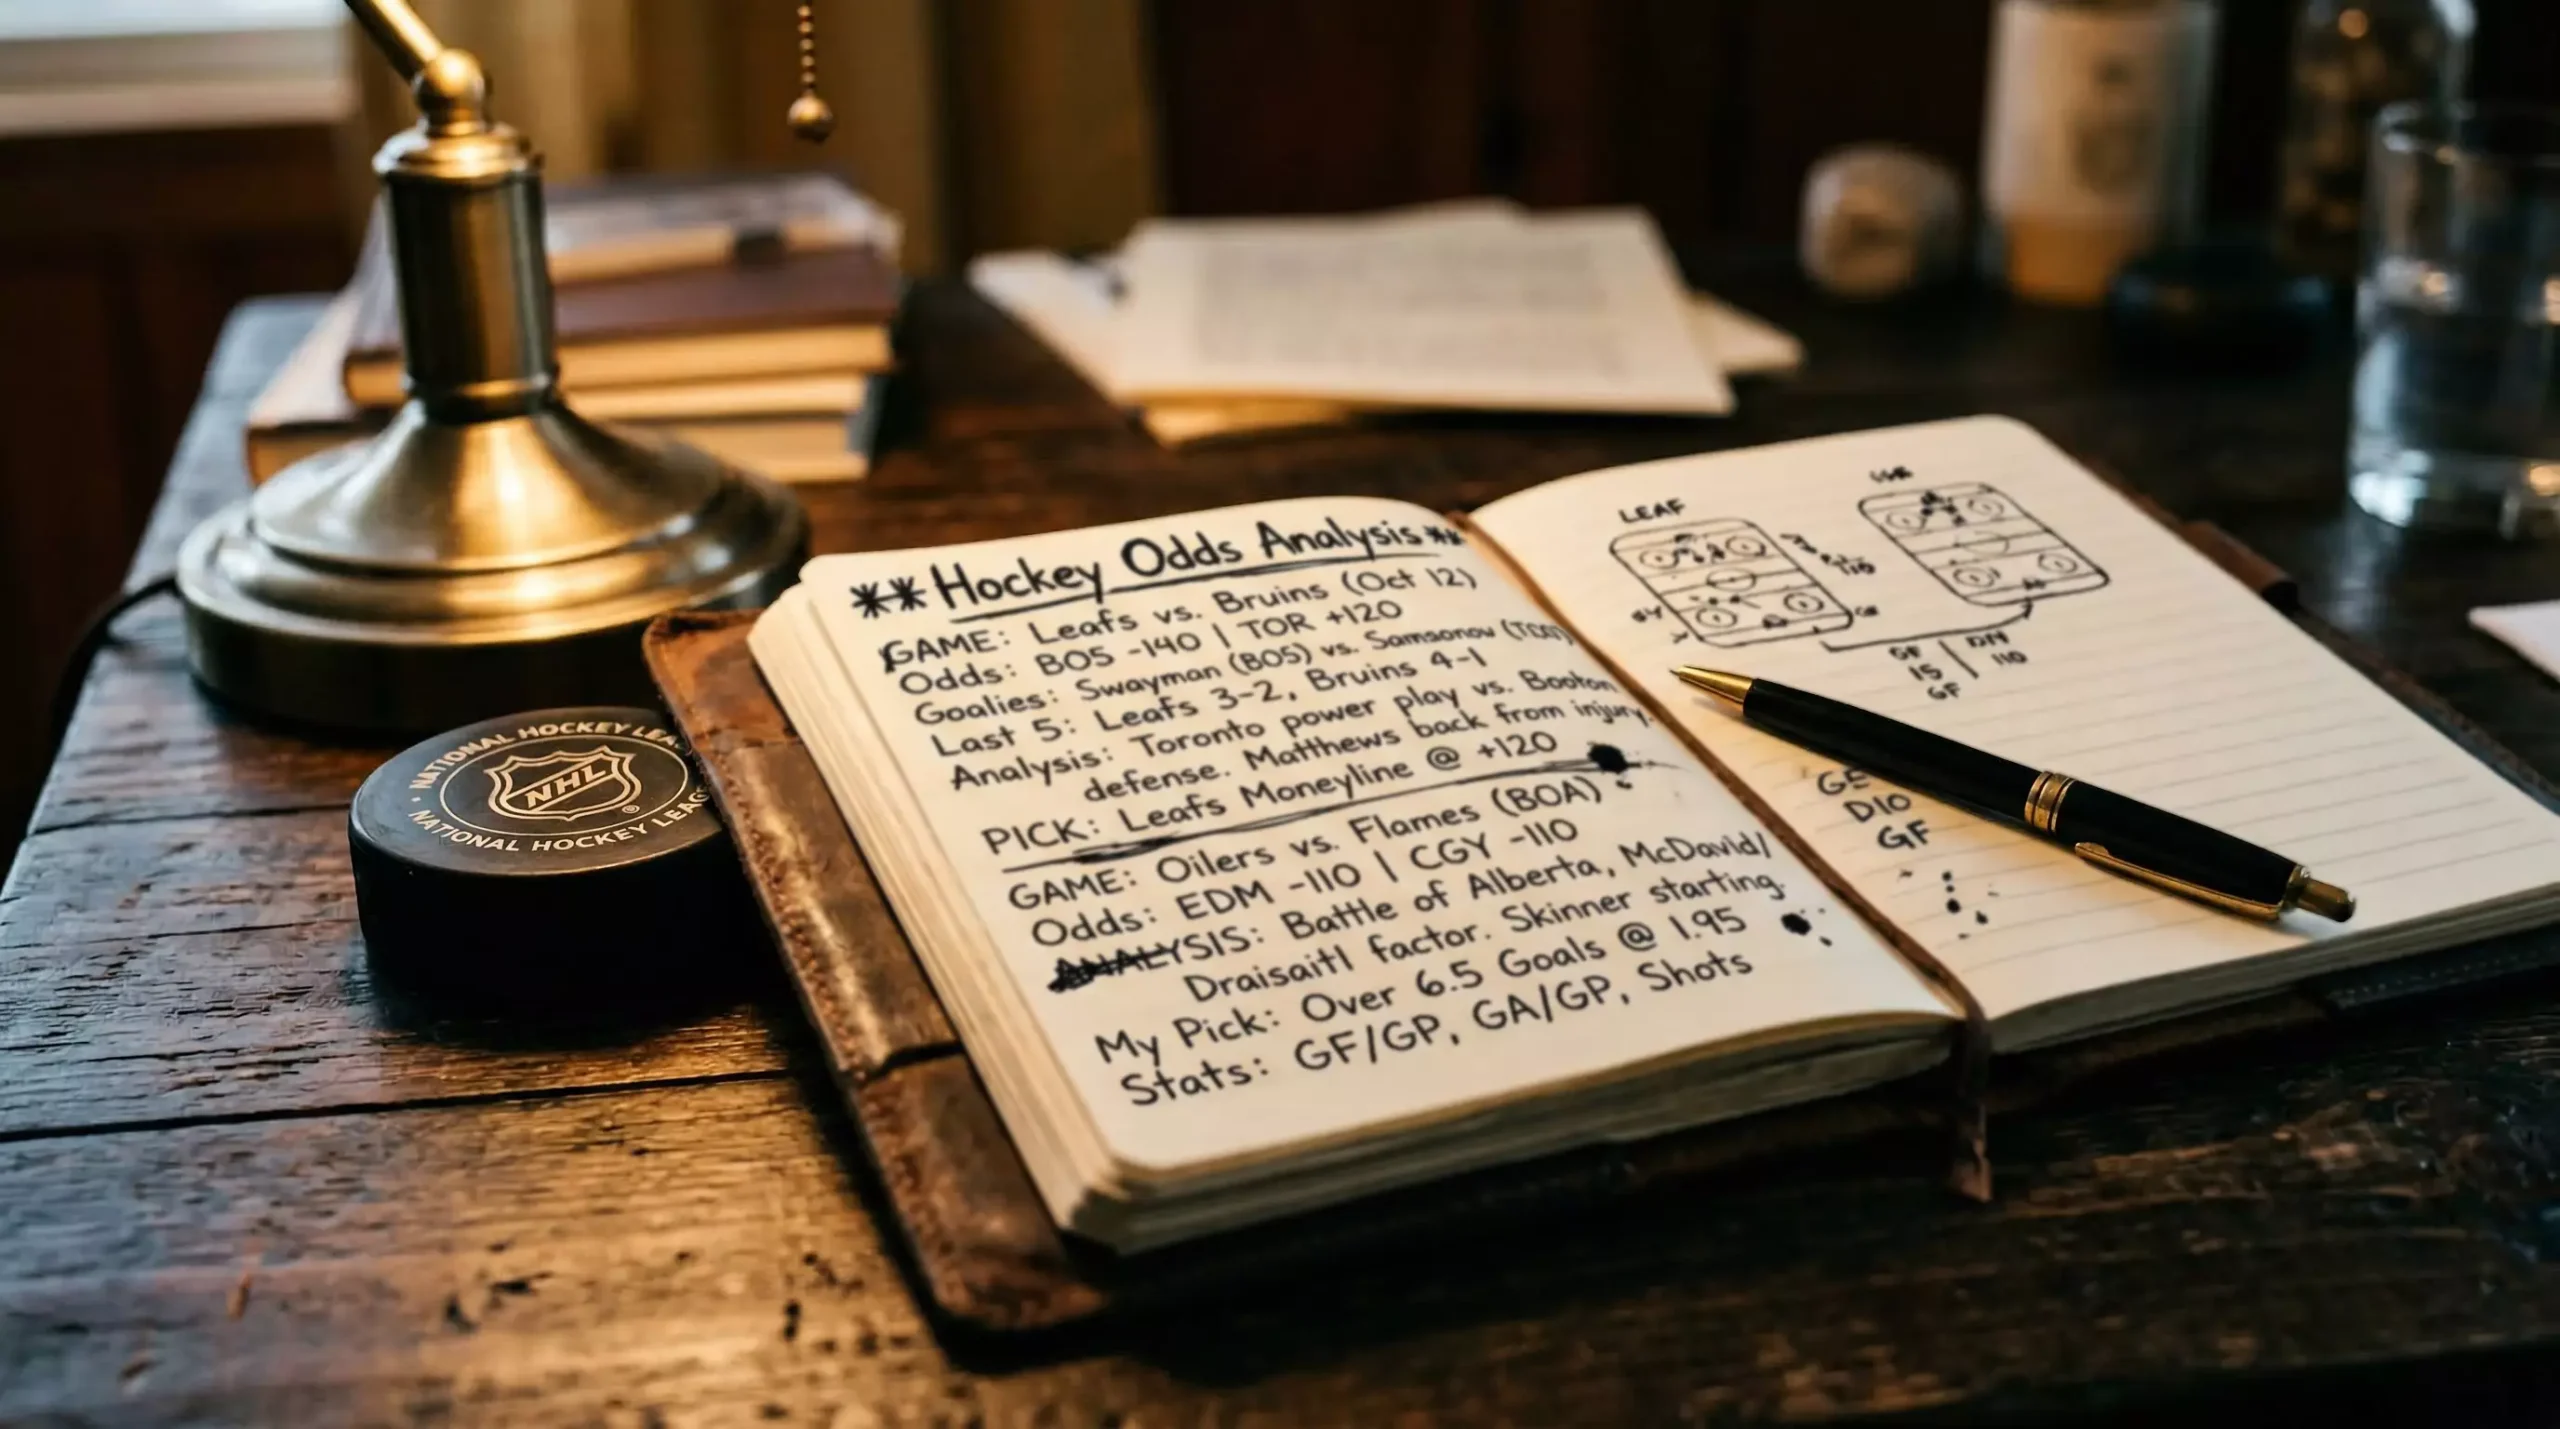 ** Hockey Odds Analysis **
GAME: Leafs vs. Bruins (Oct 12)
Odds: BOS -140 | TOR +120
Goalies: Swayman (BOS) vs. Samsonov
Last 5: Leafs 3-2, Bruins 4-1
Analysis: Toronto power play vs. Booton
defense. Matthews back from injury.
PICK: Leafs Moneyline @ +120
GAME: Oilers vs. Flames (BOA)
Odds: EDM -110 | CGY -110
ANALYSIS: Battle of Alberta, McDavid/
Draisaitl factor. Skinner starting.
My Pick: Over 6.5 Goals @ 1.95
Stats: GF/GP, GA/GP, Shots
LEAF
GF
15
GF
110
GE
D10
GF
NATIONAL HOCKEY LEA
NHL
®
NATIONAL HOCKEY LEAG